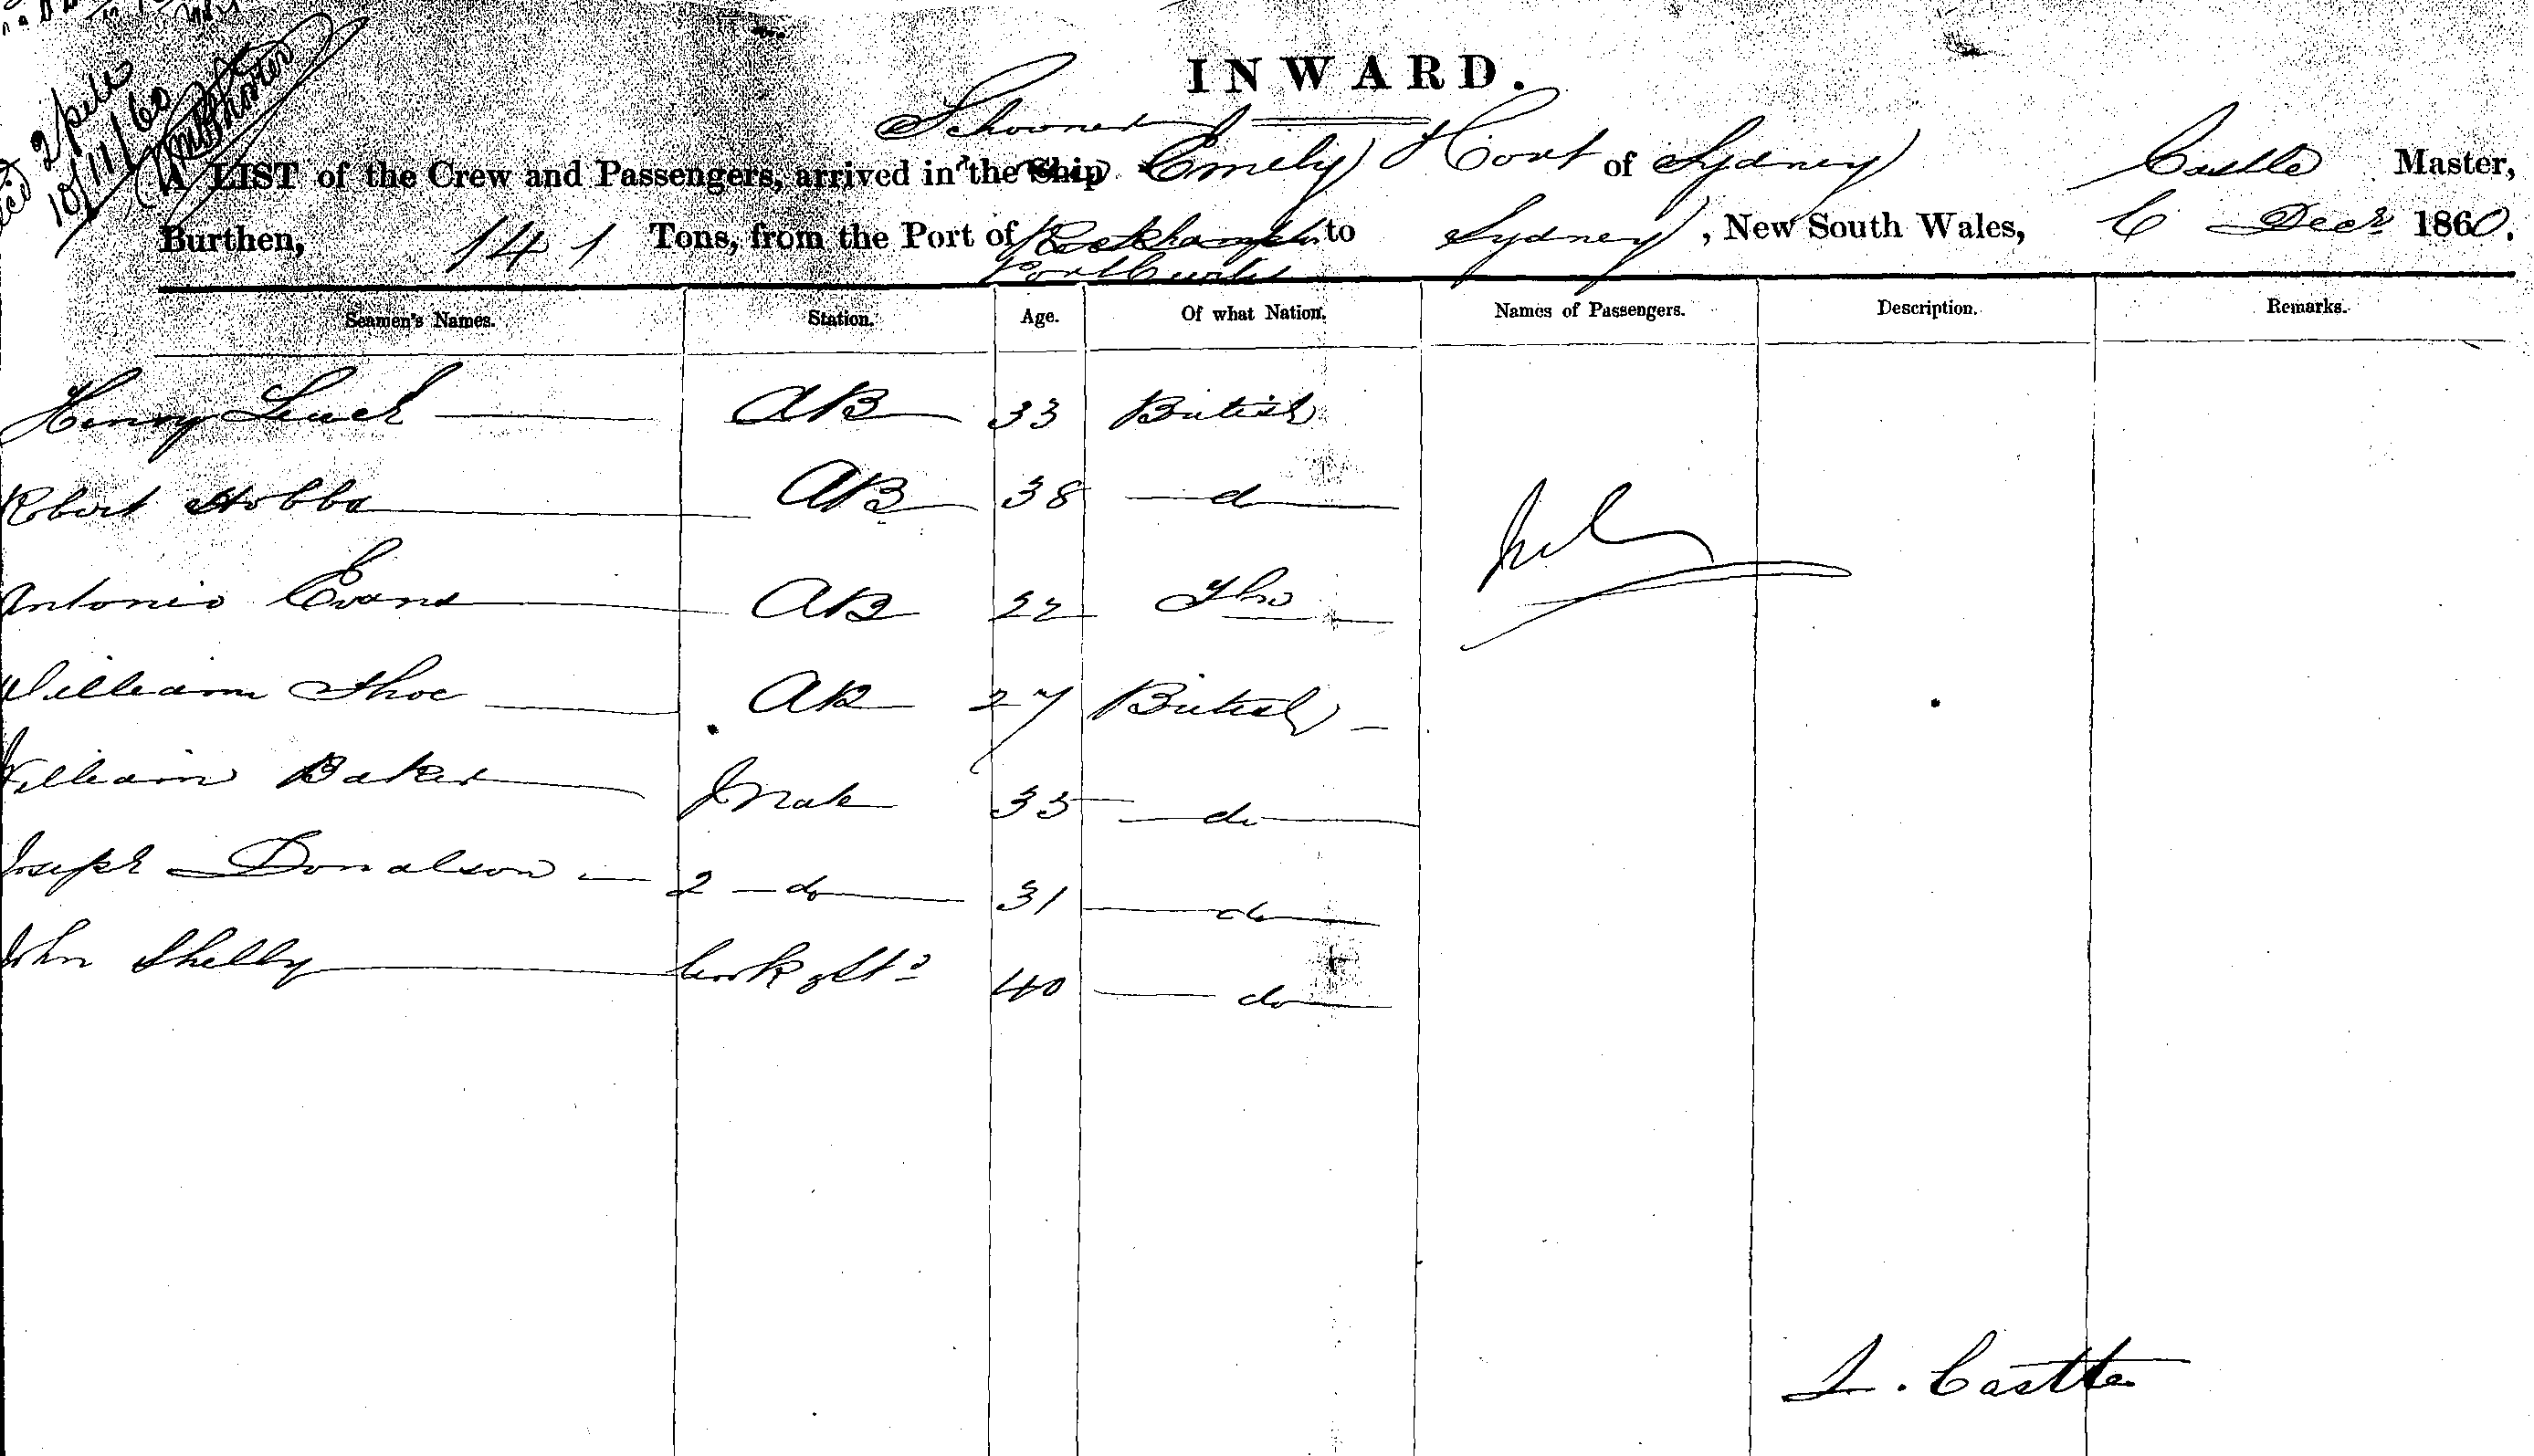 2 pils
10/11/60
INWARD.
Schooner
A LIST of the Crew and Passengers, arrived in the Ship Emely Hort of Sydney Castle Master,
Burthen, 141 Tons, from the Port of Rockhampton to Sydney, New South Wales, 6 Decr 1860.
Port Curtis
Seamen's Names. Station. Age. Of what Nation. Names of Passengers. Description. Remarks.
Henry AB 33 British
Robert Hobbs AB 38 do
Antonio Evans AB 22
William Thoe AB 27 British
William Baker Mate 35 do
Joseph Donalson 2 do 31 do
John Shelly Cook & Std 40 do
Castle